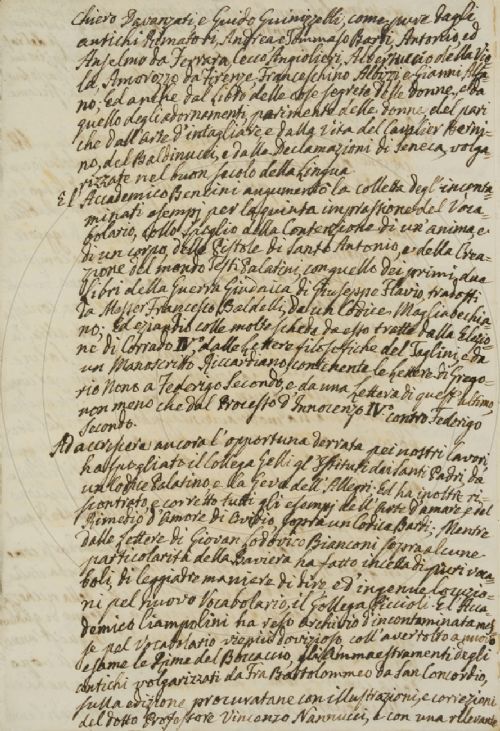 Chiero Davanzati, e Guido Guinizzelli, come pure dagli
antichi Rimatori, Andrea e Tommaso Bardi, Antonio, ed
Anselmo da Ferrara, Cecco Angiolieri, Albertuccio della Vio-
la, Amorozzo da Firenze, Franceschino Albizzi e Gianni Alfa
no: ed anche dal libro delle cose segrete delle donne, e da
quello degli adornamenti, parimente delle donne, del pari
che dall'arte d'intagliare e dalla vita del Cavalier Berni-
no, del Baldinucci, e dalle Declamazioni di Seneca, volga-
rizzate nel buon secolo della Lingua
E l'Accademico Bencini augumentò la colletta degl'inconta-
minati esempi per la quinta impressione del Voca-
bolario, collo spoglio della Contenzione di un'anima e
di un corpo, delle Pistole di Santo Antonio, e della Crea-
zione del mondo Testi Palatini, con quello dei primi due
libri della Guerra Giudaica di Giuseppe Flavio, tradotti
da Messer Francesco Baldelli, da un Codice Magliabechia-
no: ed eziandio colle molte schede da esso tratte dalla Elezio-
ne di Corrado IV.° dalle Lettere filosofiche del Taglini, e da
un Manoscritto Riccardiano, contenente le Lettere di Grego-
rio Nono a Federigo Secondo, e da una lettera di quest'ultimo
non meno che dal Processo d'Innocenzo IV.° contro Federigo
Secondo.
Ad accrescere ancora l'opportuna derrata pei nostri lavori
ha spogliato il Collega Gelli gl'Istituti dei Santi Padri, da
un Codice Palatino e la Geva dell'Allegri. Ed ha inoltre ri-
scontrato e corretto tutti gli esempj dell'Arte d'amare e del
Rimedio d'Amore di Ovidio, sopra un Codice Bardi; Mentre
dalle Lettere di Giovan Lodovico Bianconi sopra alcune
particolarità della Baviera ha fatto incetta di puri voca-
boli, di leggiadre maniere di dire, ed'ingenue locuzio-
ni pel nuovo Vocabolario, il Collega Piccioli. E l'Acca-
demico Ciampolini ha reso archivio d'incontaminata mes
se pel Vocabolario viepiù dovizioso, coll'aver tolto a nuovo
esame le Rime del Boccaccio, gli Ammaestramenti degli
antichi volgarizzati da Fra Bartolommeo da San Concordio,
sulla edizione procuratane con illustrazioni, e correzioni
del dotto Professore Vincenzo Nannucci, e con una rilevante